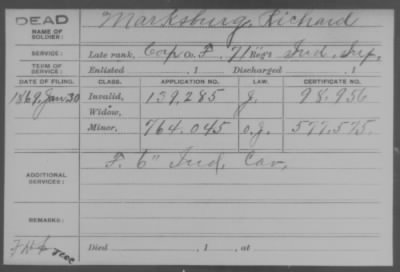 DEAD
NAME OF SOLDIER: Marksburg, Richard
SERVICE: Late rank, Corp Co. F, 71 Reg't Ind. Inf.
TERM OF SERVICE: Enlisted , 1 Discharged , 1
DATE OF FILING. CLASS. APPLICATION NO. LAW. CERTIFICATE NO.
1869, Jan. 30 Invalid, 139,285 98.956
Widow,
Minor, 764.045 577,575.
ADDITIONAL SERVICES: F. 6" Ind. Cav,
REMARKS:
Died , 1 , at